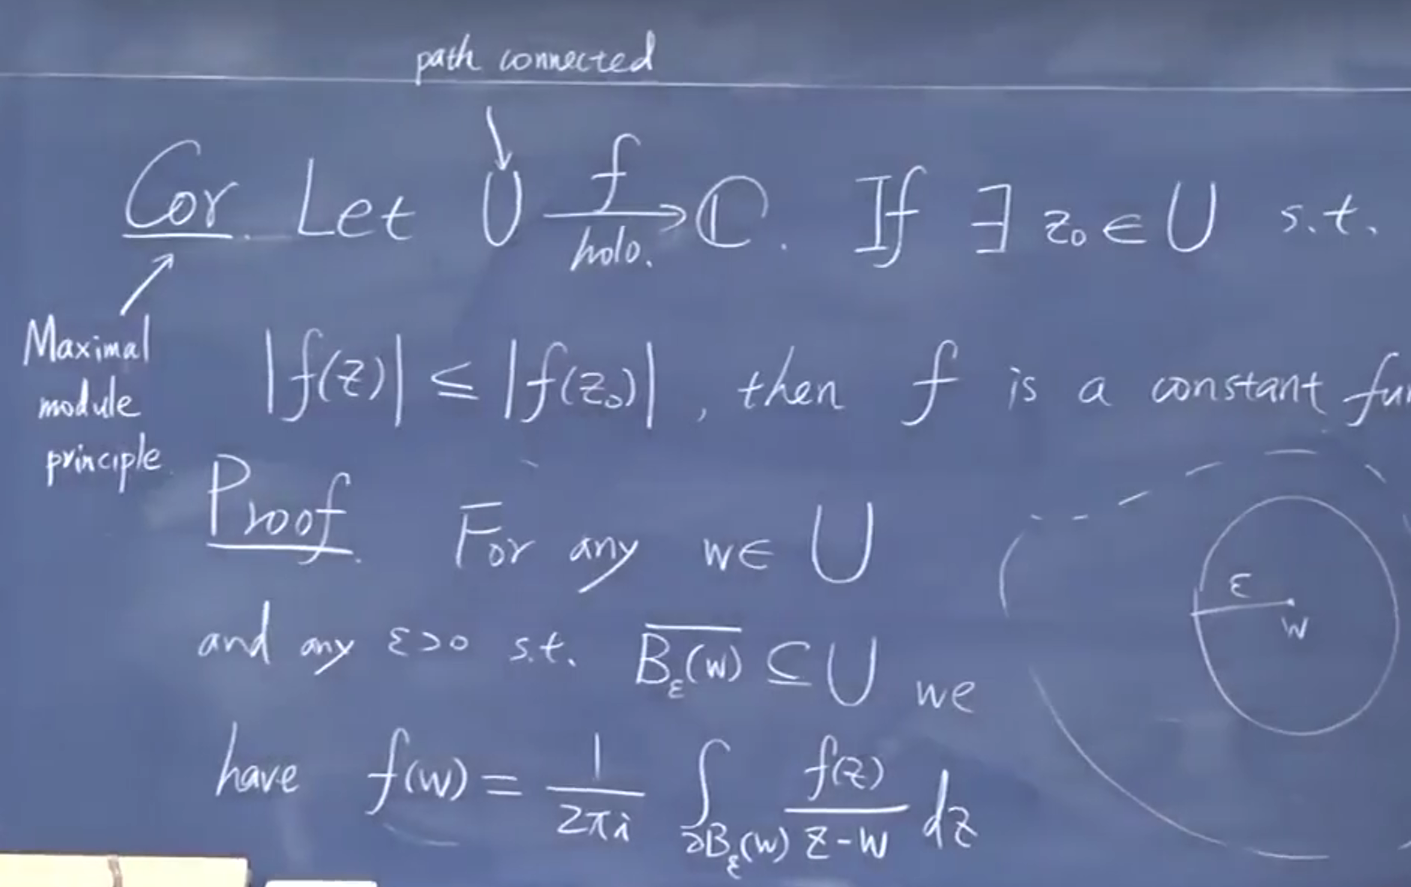 path connected
Cor. Let U f→ holo. ℂ. If ∃ z₀ ∈ U s.t.
Maximal
module
principle.
|f(z)| ≤ |f(z₀)|, then f is a constant
Proof. For any w ∈ U
and any ε>0 s.t. \overline{B_ε(w)} ⊆ U we
have f(w) = \frac{1}{2πi} ∫_{∂B_ε(w)} \frac{f(z)}{z-w} dz
ε
w